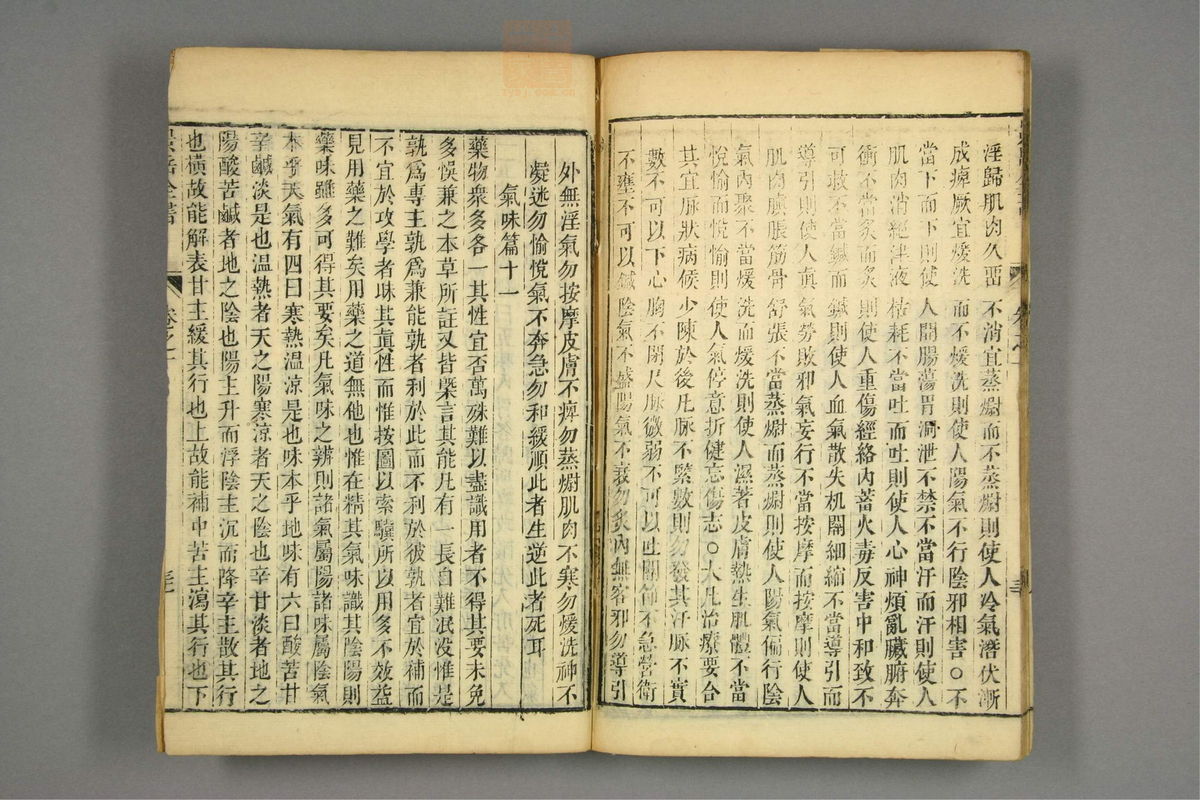 淫歸肌肉久畱不消宜蒸熨而不蒸熨則使人冷氣潛伏漸
成痺厥宜煖洗而不煖洗則使人陽氣不行陰邪相害○不
當下而下則使人開腸蕩胃洞泄不禁不當汗而汗則使人
肌肉消絕津液枯耗不當吐而吐則使人心神煩亂臟腑奔
衝不當灸而灸則使人重傷經絡內蓄火毒反害中和致不
可救不當鍼而鍼則使人血氣散失机關細縮不當導引而
導引則使人眞氣勞敗邪氣妄行不當按摩而按摩則使人
肌肉䐜脹筋骨舒張不當蒸熨而蒸熨則使人陽氣偏行陰
氣內聚不當煖洗而煖洗則使人濕著皮膚熱生肌體不當
悅愉而悅愉則使人氣停意折健忘傷志○大凡治療要合
其宜脈狀病候少陳於後凡脈不緊數則勿發其汗脈不實
數不可以下心胸不閉尺脈微弱不可以吐關節不急營衛
不壅不可以鍼陰氣不盛陽氣不衰勿灸內無客邪勿導引
外無淫氣勿按摩皮膚不痺勿蒸熨肌肉不寒勿煖洗神不
凝迷勿愉悅氣不奔急勿和緩順此者生逆此者死耳
氣味篇十一
藥物衆多各一其性宜否萬殊難以盡識用者不得其要未免
多悞兼之本草所註又皆槩言其能凡有一長自難泯没惟是
孰爲專主孰爲兼能孰者利於此而不利於彼孰者宜於補而
不宜於攻學者昩其眞性而惟按圖以索驥所以用多不效益
見用藥之難矣用藥之道無他也惟在精其氣味識其陰陽則
藥味雖多可得其要矣凡氣味之辨則諸氣屬陽諸味屬陰氣
本乎天氣有四曰寒熱温涼是也味本乎地味有六曰酸苦甘
辛鹹淡是也温熱者天之陽寒涼者天之陰也辛甘淡者地之
陽酸苦鹹者地之陰也陽主升而浮陰主沉而降辛主散其行
也橫故能解表甘主緩其行也上故能補中苦主瀉其行也下
景岳全書
卷之一
三